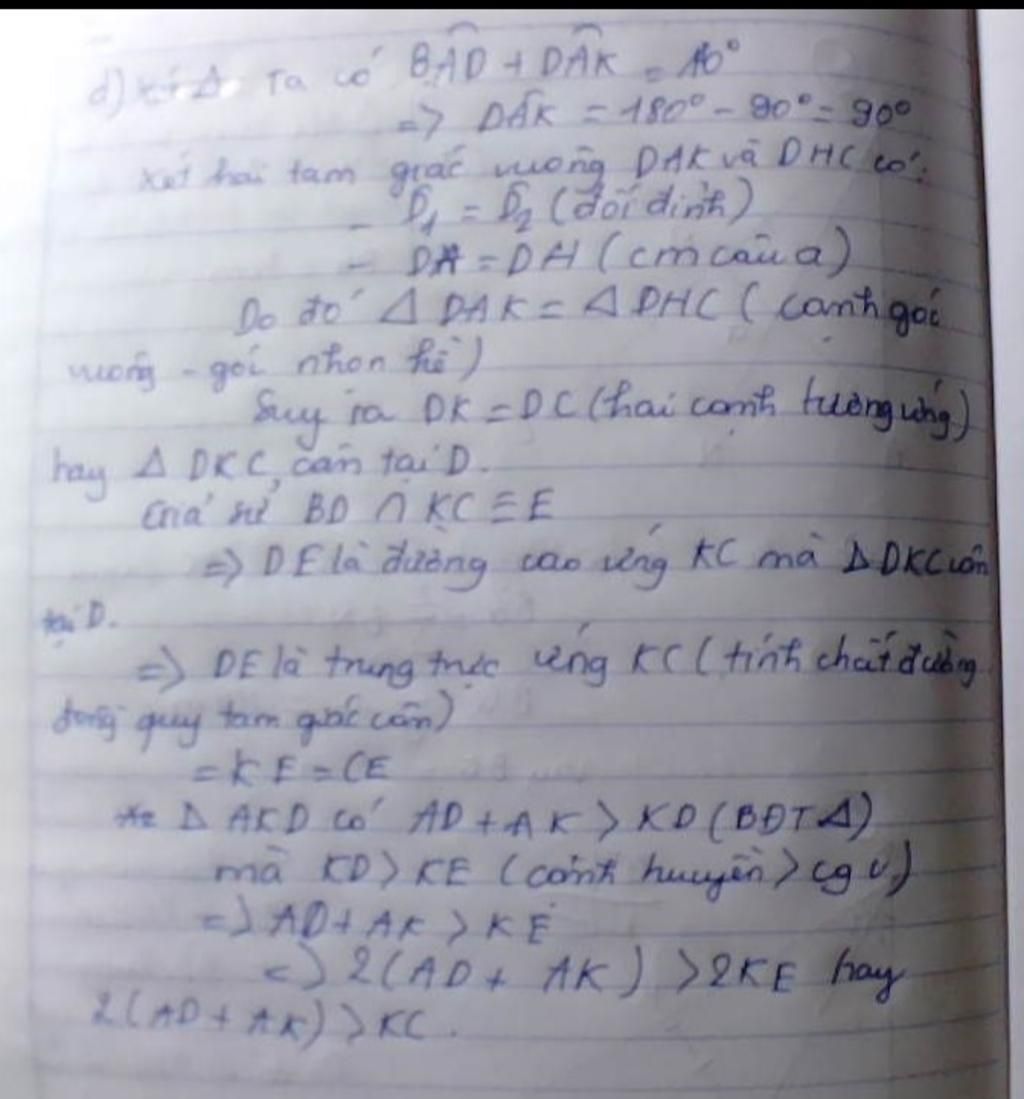 d) Ta có BÂD + DÂK = 180°
=> DÂK = 180° - 90° = 90°
Xét hai tam giác vuông DAK và DHC có:
- D̂₁ = D̂₂ (đối đỉnh)
- DA = DH (cm câu a)
Do đó Δ DAK = Δ DHC (cạnh góc
vuông - góc nhọn kề)
Suy ra DK = DC (hai cạnh tương ứng)
hay Δ DKC cân tại D.
Giả sử BD ∩ KC ≡ E
=> DE là đường cao ứng KC mà Δ DKC cân
tại D.
=> DE là trung trực ứng KC (tính chất đường
đồng quy tam giác cân)
= KE = CE
Δ AKD có AD + AK > KD (BĐT Δ)
mà KD > KE (cạnh huyền > cgv)
=> AD + AK > KE
=> 2(AD + AK) > 2KE hay
2(AD + AK) > KC.